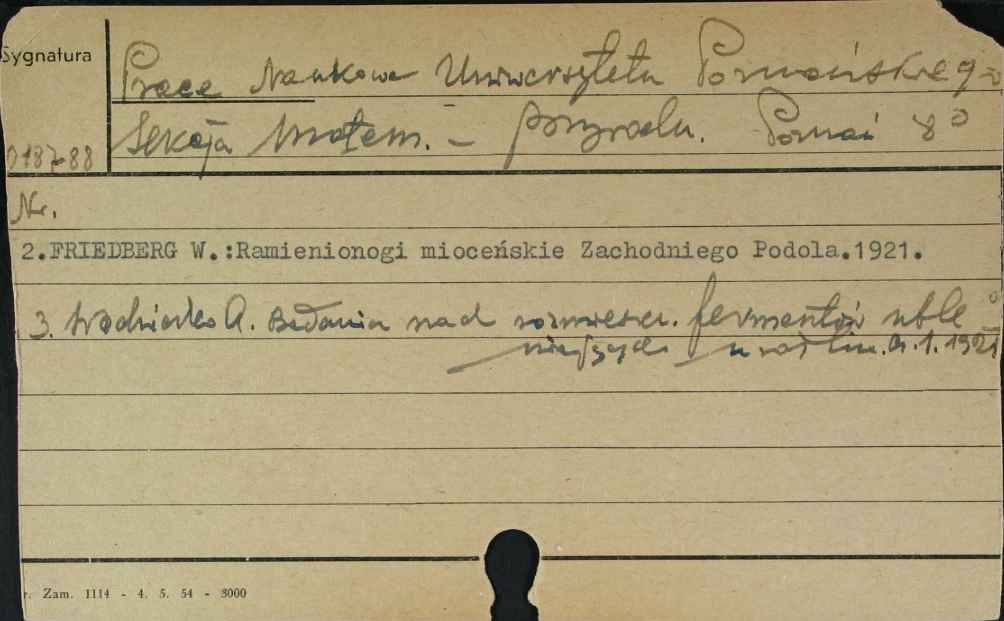 Sygnatura
Prace Naukowe Uniwersytetu Poznańskiego
Sekcja matem. - przyrodn. Poznań 8°
Nr.
2.FRIEDBERG W.:Ramienionogi mioceńskie Zachodniego Podola.1921.
3. A. Badania nad rozmieszcz. fermentów utle
niających u roślin. 1. 1921
r. Zam. 1114 - 4. 5. 54 - 3000